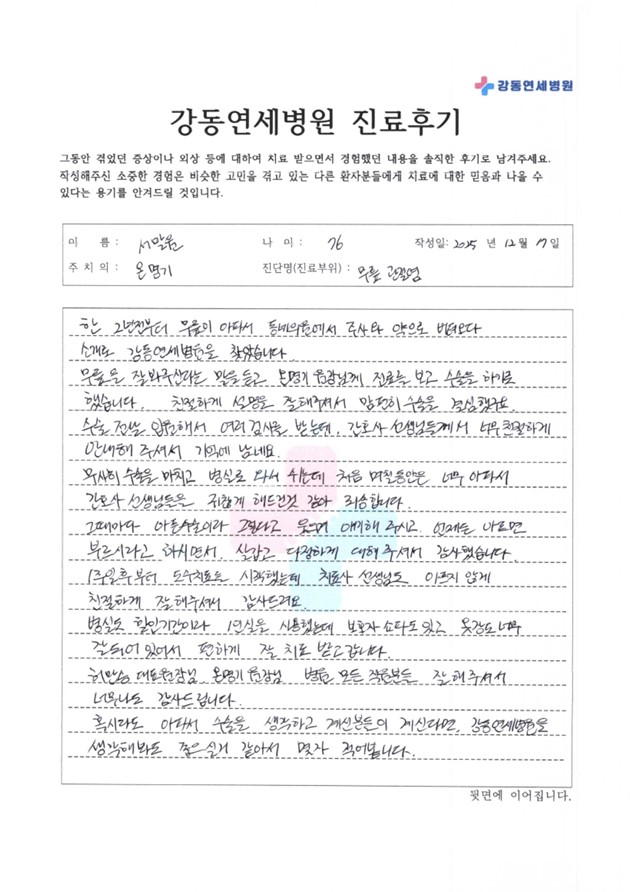 강동연세병원
강동연세병원 진료후기
그동안 겪었던 증상이나 외상 등에 대하여 치료 받으면서 경험했던 내용을 솔직한 후기로 남겨주세요.
작성해주신 소중한 경험은 비슷한 고민을 겪고 있는 다른 환자분들에게 치료에 대한 믿음과 나을 수
있다는 용기를 안겨드릴 것입니다.
이 름 : 서말운 나 이 : 76 작성일: 2025 년 12 월 17 일
주 치 의 : 온명기 진단명(진료부위) : 무릎 관절염
한 2년전부터 무릎이 아파서 동네의원에서 주사와 약으로 버텨오다
소개로 강동연세병원을 찾았습니다
무릎을 잘 봐주신다는 말을 듣고 온명기 원장님께 진료를 보고 수술을 하기로
했습니다. 친절하게 설명을 잘해주셔서 맘편히 수술을 결심했구요.
수술 전날 입원해서 여러 검사를 받는데, 간호사 선생님들께서 너무 친절하게
안내해 주셔서 기억에 남네요.
무사히 수술을 마치고 병실로 와서 쉬는데 처음 며칠동안은 너무 아파서
간호사 선생님들을 귀찮게 해드린것 같아 죄송합니다.
그때마다 아픈수술이라 그렇다고 웃으며 얘기해 주시고 언제든 아프면
부르시라고 하시면서, 살갑고 다정하게 대해 주셔서 감사했습니다.
1주일후부터 도수치료를 시작했는데 치료사 선생님도 아프지 않게
친절하게 잘해주셔서 감사드려요
병실도 할인기간이라 1인실을 사용했는데 보호자 쇼파도 있고 옷장도 너무
잘되어 있어서 편하게 잘 치료 받고갑니다.
허만승 대표원장님 온명기 원장님 병원 모든 직원분들 잘 해주셔서
너무나도 감사드립니다.
혹시라도 아파서 수술을 생각하고 계신분들이 계신다면, 강동연세병원을
생각해봐도 좋으실거 같아서 몇자 적어봅니다.
뒷면에 이어집니다.